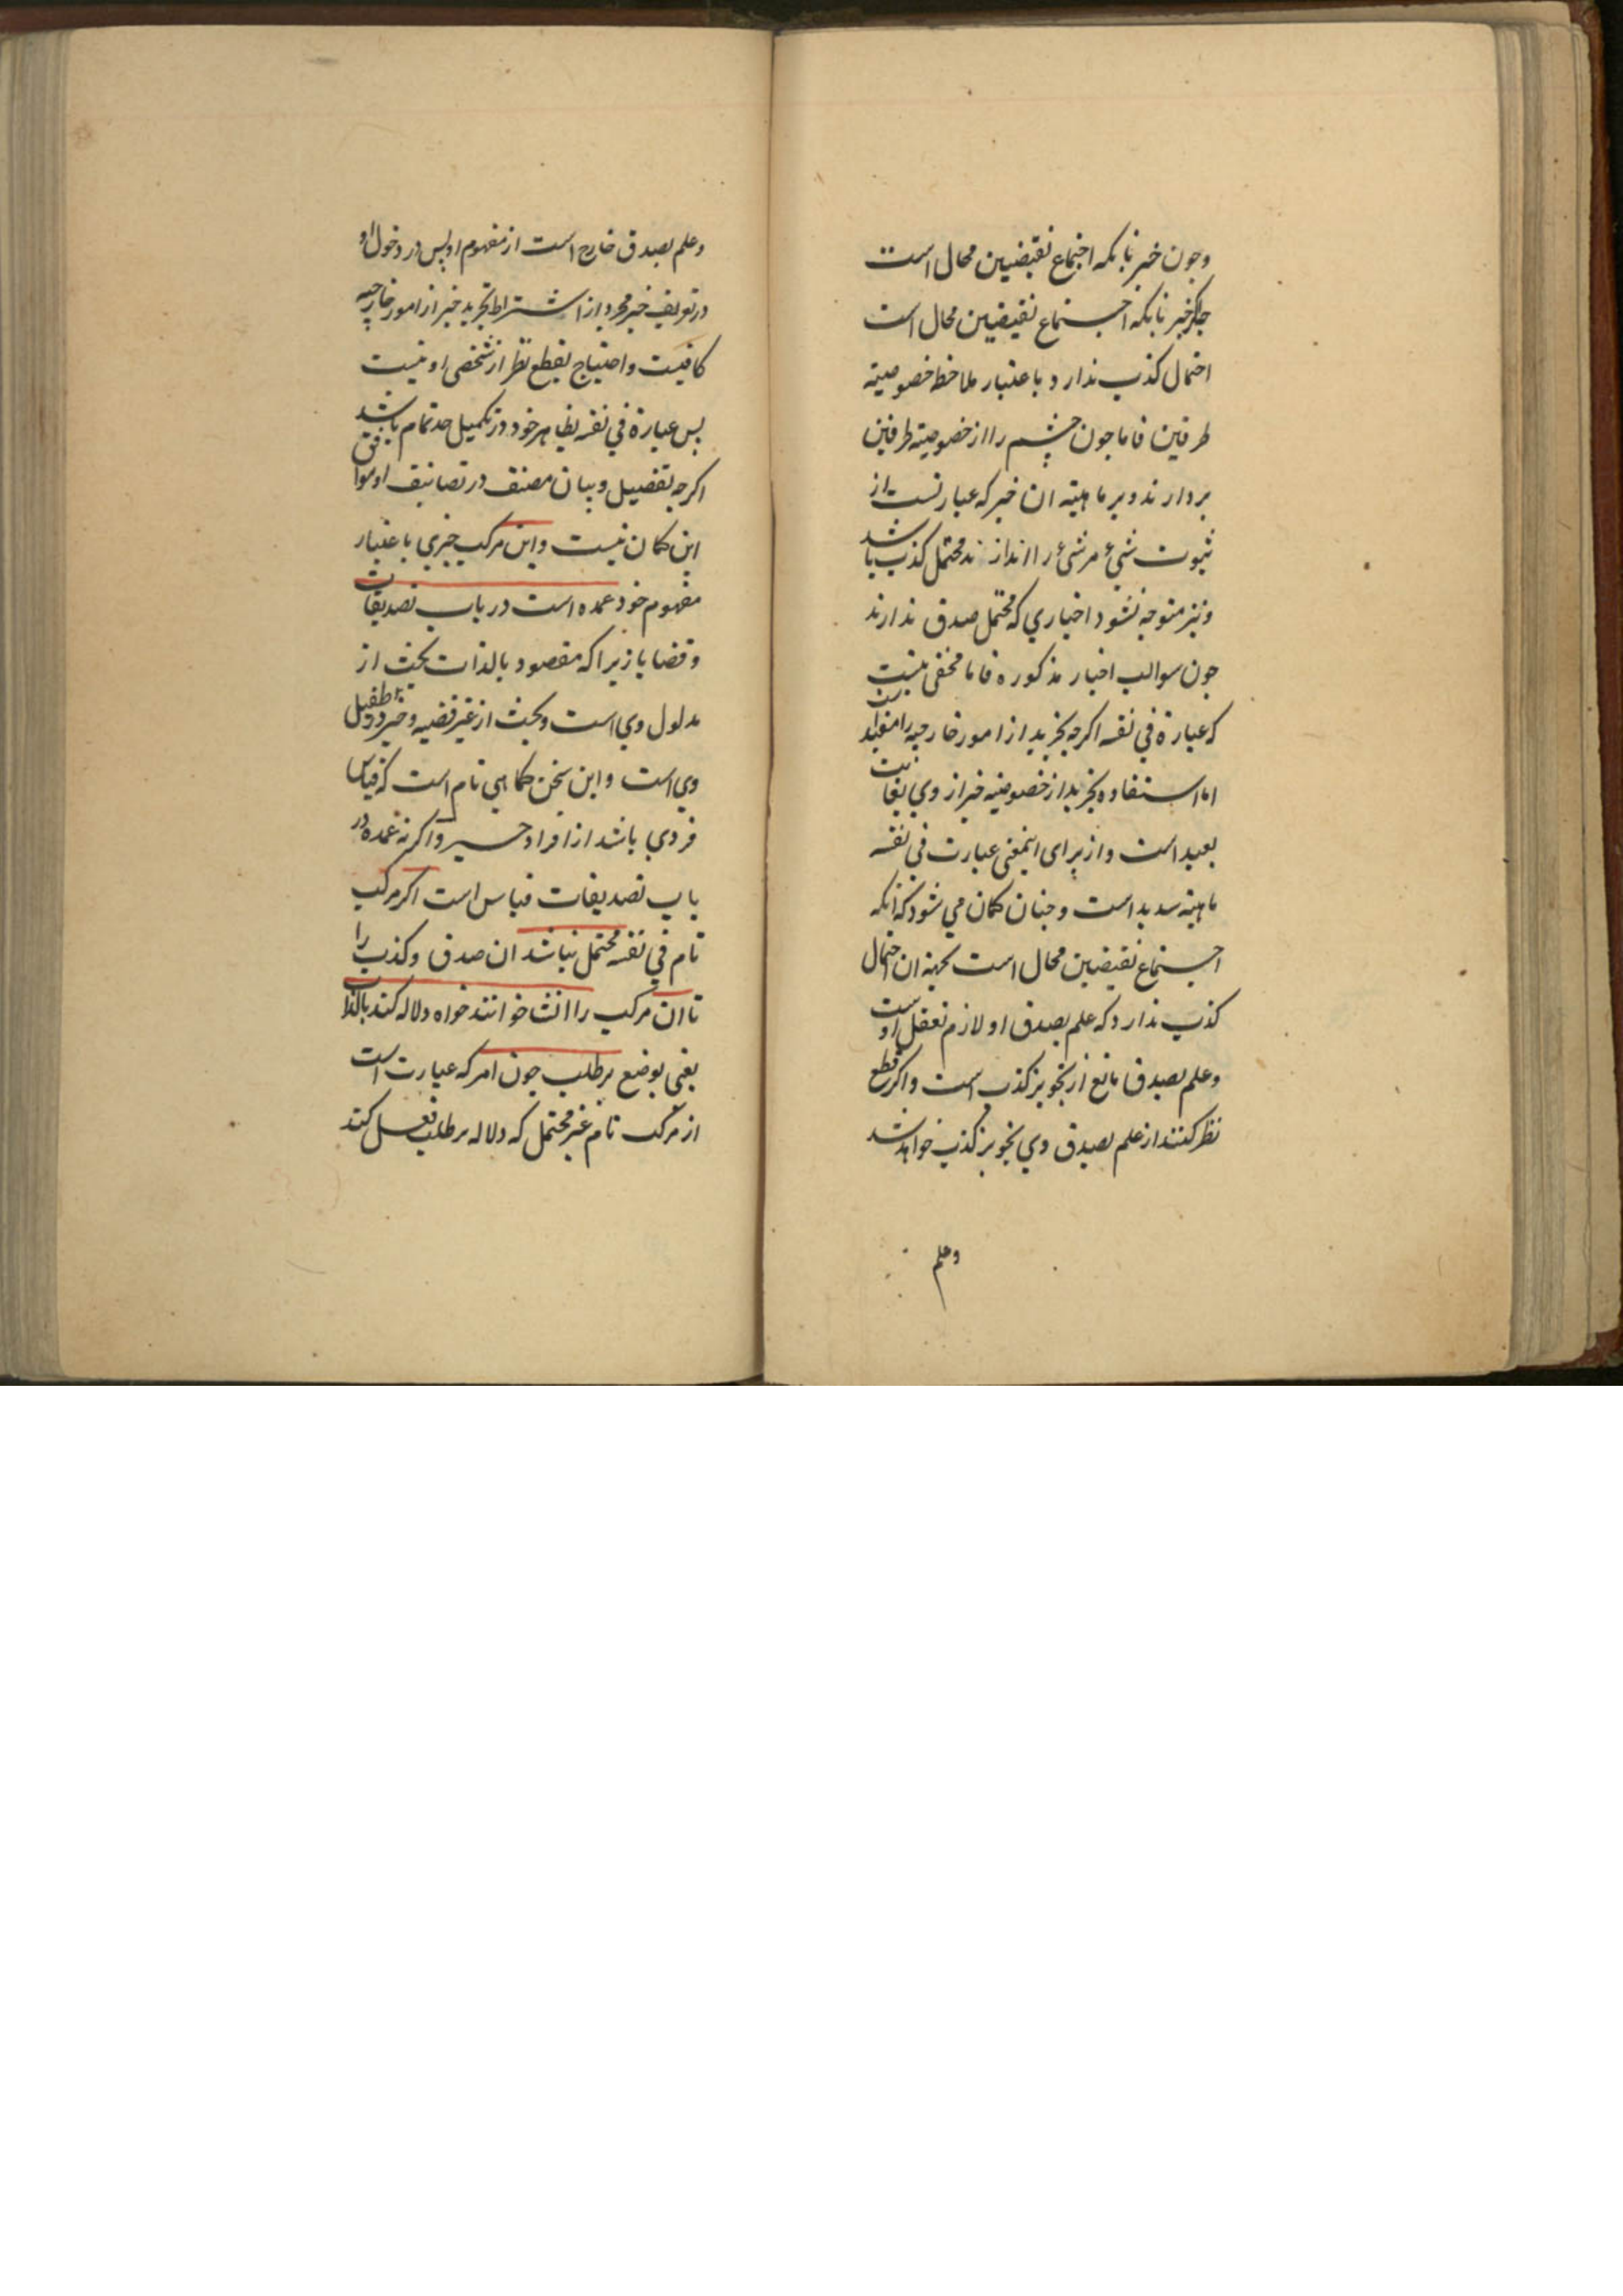 وجون خبر بانکه اجتماع نقیضیین محال است
خبر بانکه اجتماع نقیضیین محال است
احتمال کذب ندارد باعتبار ملاحظه خصوصیة
طرفین فاما جون چشم را از خصوصیة طرفین
بردارند و بر ماهیة ان خبر که عبارتست از
ثبوت شیء مر شیء را اندازند محتمل کذب باشد
و نیز متوجه نشود اخباری که محتمل صدق ندارند
جون سوالب اخبار مذکوره فاما مخفی نیست
که عبارة في نفسه اکرجه تجرید از امور خارجیه را مفید است
اما استفاده تجرید از خصوصیة خبر از وي بغایت
بعید است و از برای اینمعنی عبارت في نفسه
ماهیته سدید است و جنان کمان مي شود که انکه
اجتماع نقیضیین محال است بجهة ان احتمال
کذب ندارد که علم بصدق او لازم تعقل اوست
و علم بصدق مانع از تجویز کذب است و اکر قطع
نظر کنند از علم بصدق وي تجویز کذب خواهد شد
وعلم
وعلم بصدق خارج است از مفهوم او پس در دخول او
در تعریف خبر مجرد از اشتراط تجرید خبر از امور خارجیه
کافیست و احتیاج بقطع نظر از تشخص او نیست
بس عبارة في نفسه بظاهر خود در تکمیل حد تمام باشد
اکرجه تفصیل و بیان مصنف در تصانیف او موافق
این کمان نیست و این مرکب خبري باعتبار
مفهوم خود عمده است در باب تصدیقات
و قضایا زیرا که مقصود بالذات بحث از
مدلول وي است و بحث از غیر قضیه و خبر در طفیل
وي است و این سخن کماهي تام است که قیاس
فردي باشد از افراد خبر و اکرنه عمده در
باب تصدیقات قیاس است اکر مرکب
تام في نفسه محتمل نباشد ان صدق و کذب را
تا ان مرکب را انشا خوانند خواه دلاله کند بالذات
یعنی بوضع بر طلب جون امر که عبارت است
از مرکب تام غیر محتمل که دلاله بر طلب فعل کند